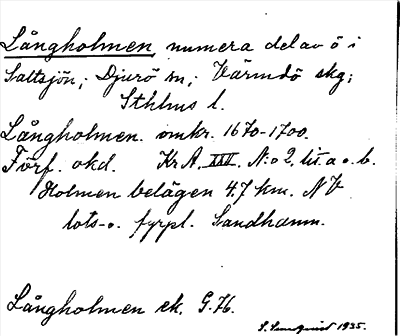 Långholmen, numera del av ö i
Saltsjön; Djurö sn; Värmdö skg;
Sthlms l.
Långholmen. omkr. 1670-1700.
Förf. okd. Kr A. XXV. N:o 2, lit. a o. b.
Holmen belägen 4.7 km. NV
lots- o. fyrpl. Sandhamn.
Långholmen ek. G.H.
1935.